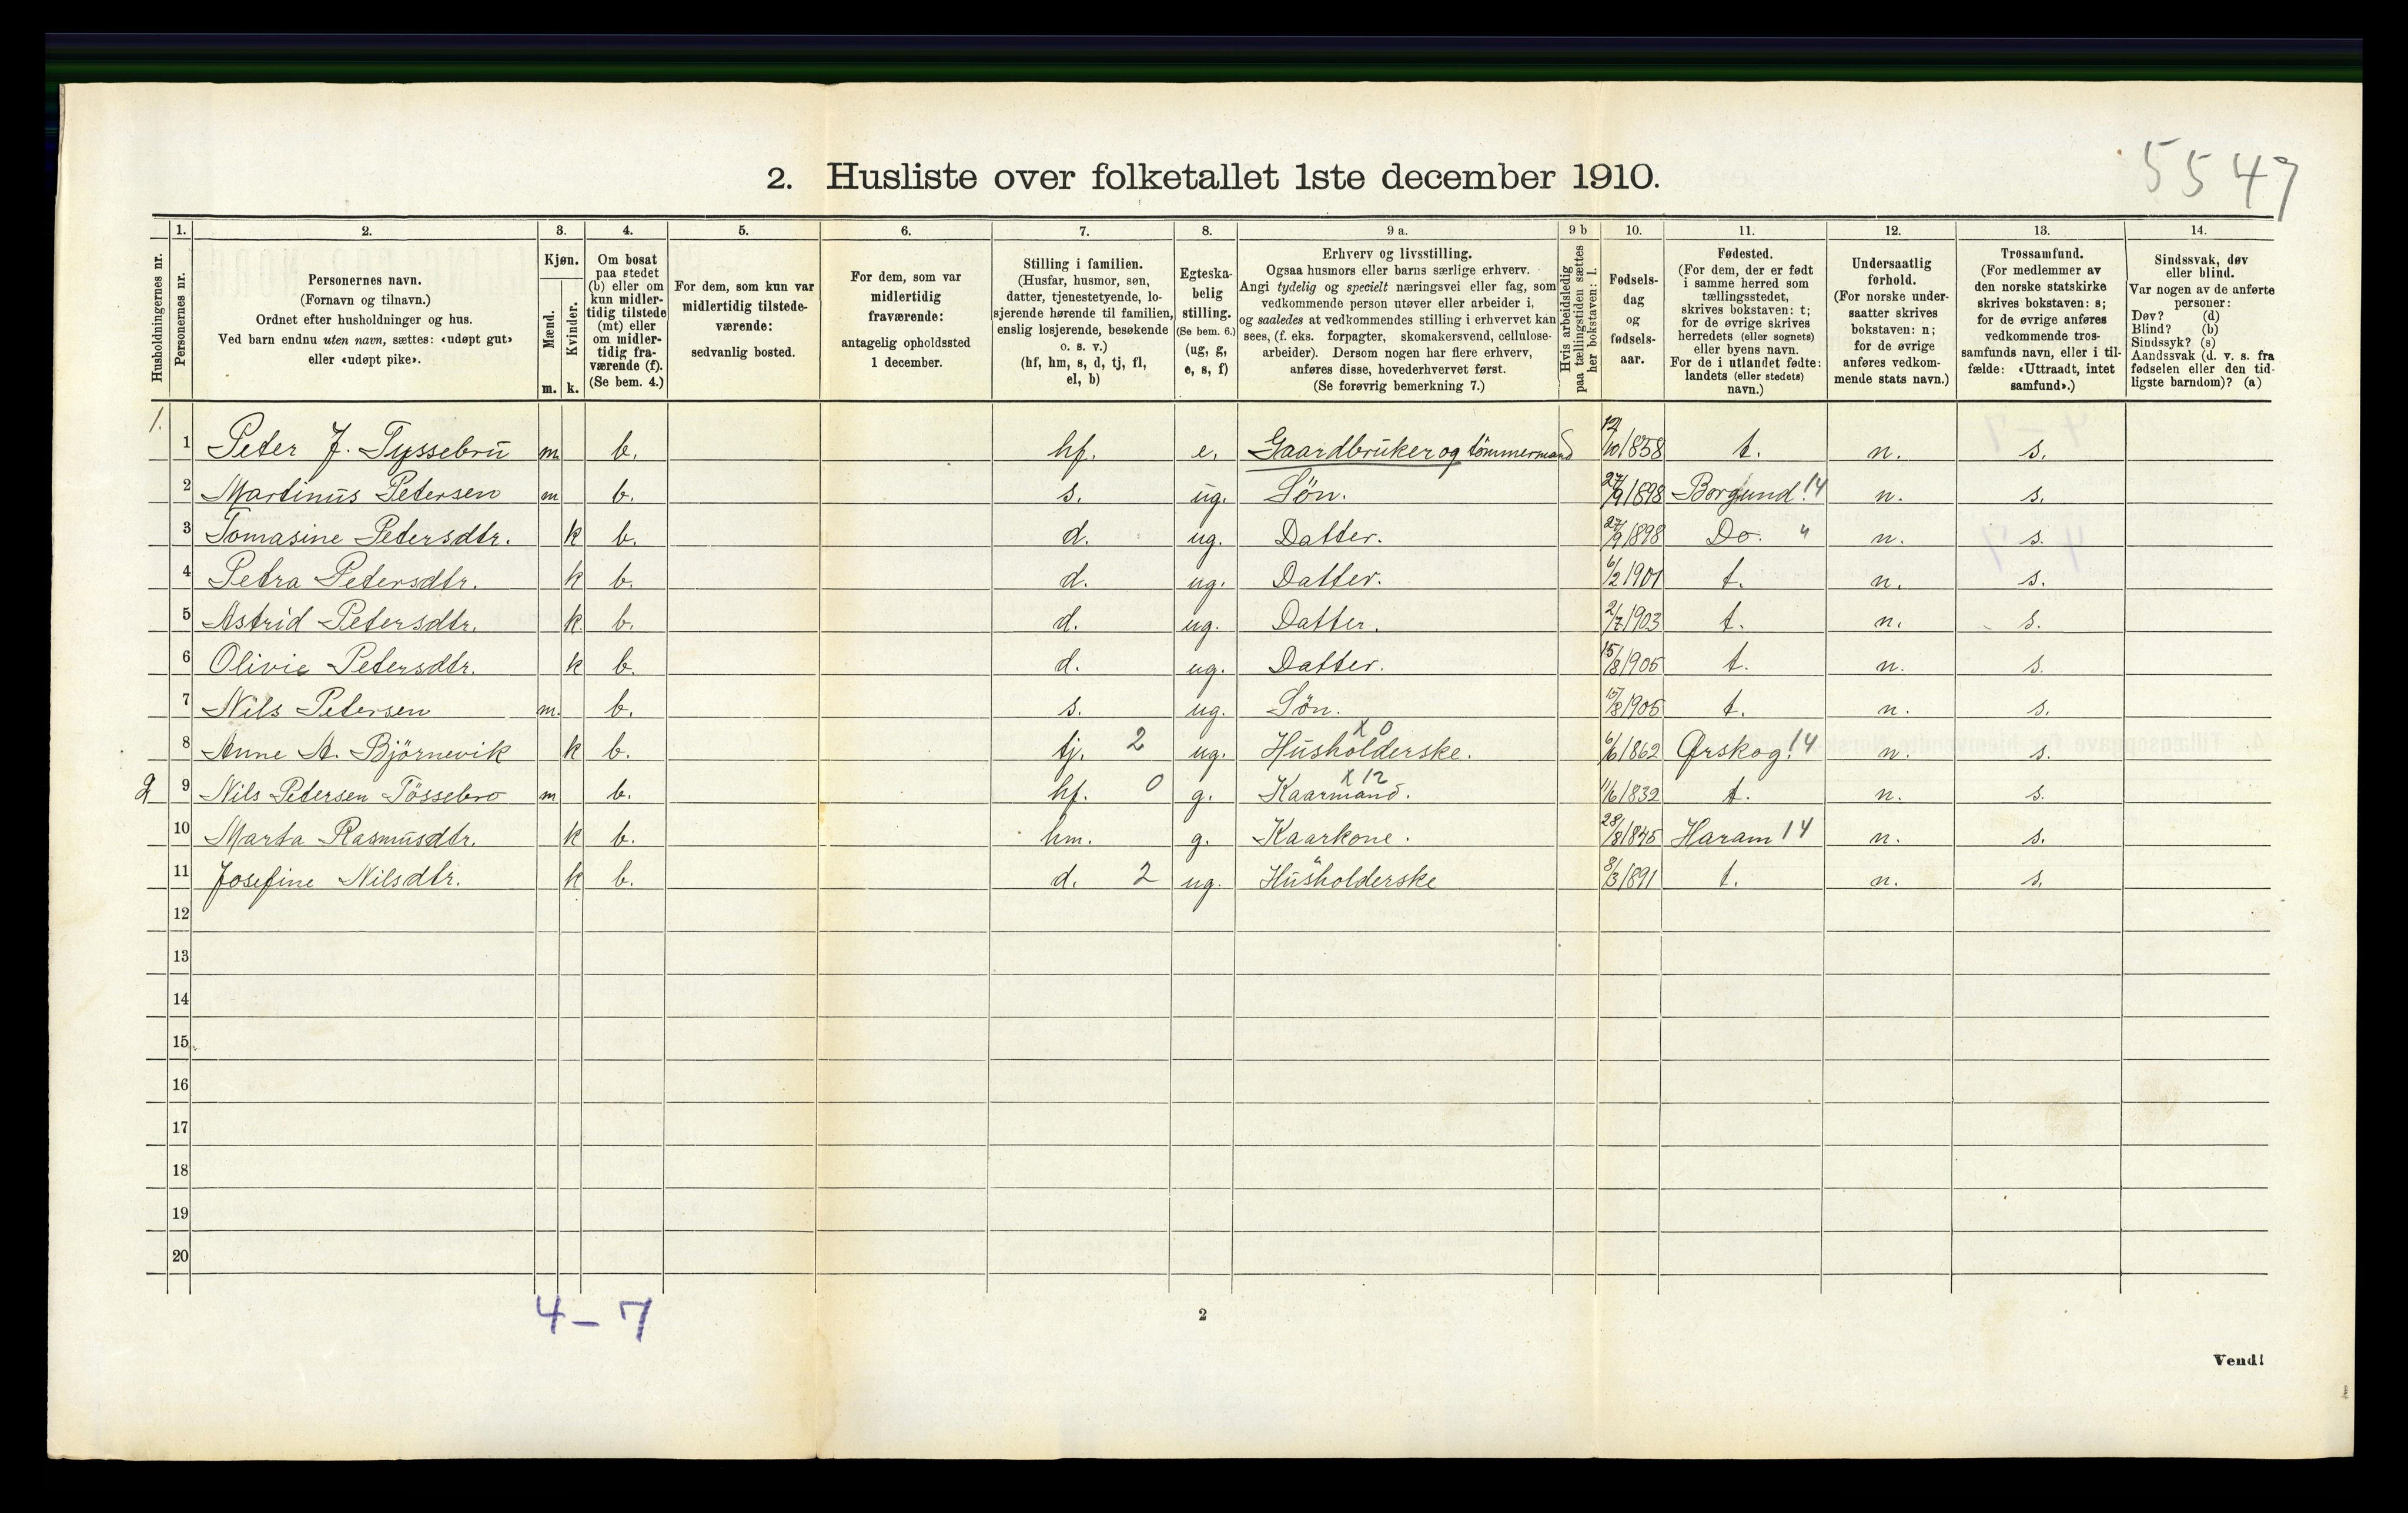 5547
2. Husliste over folketallet 1ste december 1910.
Husholdningernes nr.
1. Personernes nr.
2. Personernes navn.
(Fornavn og tilnavn.)
Ordnet efter husholdninger og hus.
Ved barn endnu uten navn, sættes: «udøpt gut»
eller «udøpt pike».
3. Kjøn.
Mænd. m.
Kvinder. k.
4. Om bosat
paa stedet
(b) eller om
kun midler-
tidig tilstede
(mt) eller
om midler-
tidig fra-
værende (f).
(Se bem. 4.)
5. For dem, som kun var
midlertidig tilstede-
værende:
sedvanlig bosted.
6. For dem, som var
midlertidig
fraværende:
antagelig opholdssted
1 december.
7. Stilling i familien.
(Husfar, husmor, søn,
datter, tjenestetyende, lo-
sjerende hørende til familien,
enslig losjerende, besøkende
o. s. v.)
(hf, hm, s, d, tj, fl,
el, b)
8. Egteska-
belig
stilling.
(Se bem. 6.)
(ug, g,
e, s, f)
9 a. Erhverv og livsstilling.
Ogsaa husmors eller barns særlige erhverv.
Angi tydelig og specielt næringsvei eller fag, som
vedkommende person utøver eller arbeider i,
og saaledes at vedkommendes stilling i erhvervet kan
sees, (f. eks. forpagter, skomakersvend, cellulose-
arbeider). Dersom nogen har flere erhverv,
anføres disse, hovederhvervet først.
(Se forøvrig bemerkning 7.)
9 b Hvis arbeidsledig
paa tællingstiden sættes
her bokstaven: l.
10. Fødsels-
dag
og
fødsels-
aar.
11. Fødested.
(For dem, der er født
i samme herred som
tællingsstedet,
skrives bokstaven: t;
for de øvrige skrives
herredets (eller sognets)
eller byens navn.
For de i utlandet fødte:
landets (eller stedets)
navn.)
12. Undersaatlig
forhold.
(For norske under-
saatter skrives
bokstaven: n;
for de øvrige
anføres vedkom-
mende stats navn.)
13. Trossamfund.
(For medlemmer av
den norske statskirke
skrives bokstaven: s;
for de øvrige anføres
vedkommende tros-
samfunds navn, eller i til-
fælde: «Uttraadt, intet
samfund».)
14. Sindssvak, døv
eller blind.
Var nogen av de anførte
personer:
Døv? (d)
Blind? (b)
Sindssyk? (s)
Aandssvak (d. v. s. fra
fødselen eller den tid-
ligste barndom)? (a)
1. 1 Peter J. Tyssebru m. b. hf. e. Gaardbruker og tømmermand 12/10 1858 t. n. s.
2 Martinus Petersen m b. s. ug. Søn. 27/9 1898 Borgund! 14 n. s.
3 Tomasine Petersdtr. k b. d. ug. Datter. 27/9 1898 Do. " n. s.
4 Petra Petersdtr. k b. d. ug. Datter. 6/2 1901 t. n. s.
5 Astrid Petersdtr. k b. d. ug. Datter. 2/7 1903 t. n. s.
6 Olivie Petersdtr. k b. d. ug. Datter. 15/8 1905 t. n. s.
7 Nils Petersen m. b. s. ug. Søn. 15/8 1905 t. n. s.
8 Anne A. Björnevik k b. tj. 2 ug. Husholderske. x 0 6/6 1862 Ørskog! 14 n. s.
2 9 Nils Petersen Tössebro m b. hf. 0 g. Kaarmand. x 12 11/6 1832 t. n. s.
10 Marta Rasmusdtr. k b. hm. g. Kaarkone. 28/8 1845 Haram 14 n. s.
11 Josefine Nilsdtr. k b. d. 2 ug. Husholderske 8/3 1891 t. n. s.
12
13
14
15
16
17
18
19
20
4 – 7
2
Vend!